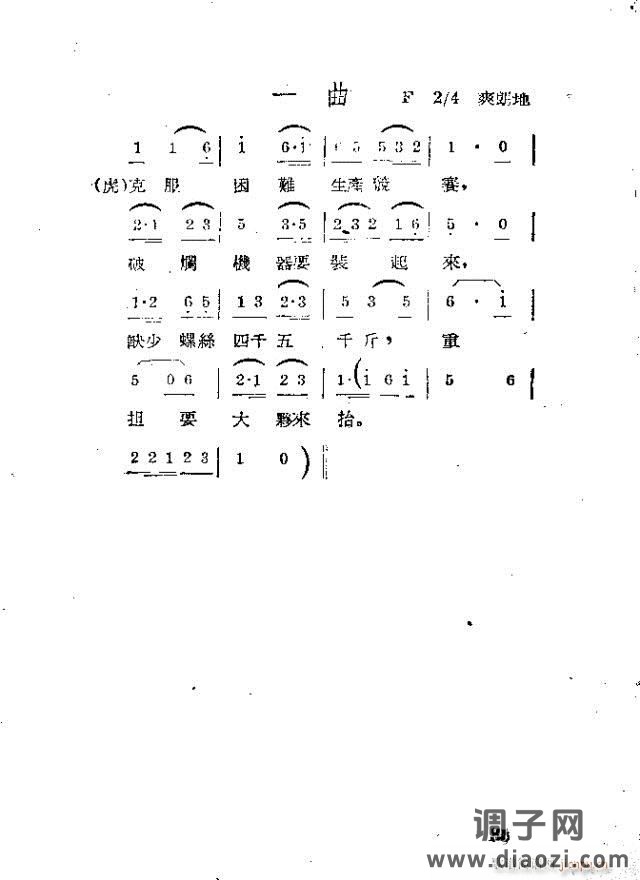 一曲 F 2/4 爽朗地
1 1 6 | i 6·i | 6 5 5 3 2 | 1 · 0
(虎)克服 困難 生產競 賽,
2·1 2 3 | 5 3·5 | 2 3 2 1 6 | 5 · 0
破爛機器要裝起來,
1·2 6 5 | 1 3 2·3 | 5 3 5 | 6 · i
缺少螺絲四千五千斤,重
5 0 6 | 2·1 2 3 | 1·(i 6 i | 5 6
担要大夥來抬。
2 2 1 2 3 | 1 0 )
调子网
www.diaozi.com